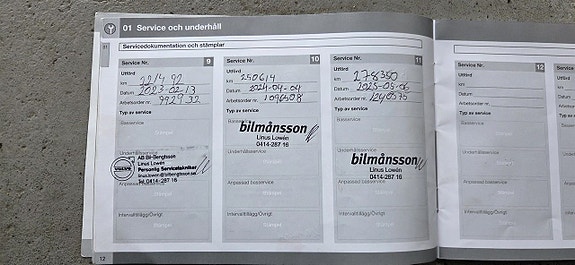 01 Service och underhåll
01
Servicedokumentation och stämplar
Service Nr. 9
Utförd
km 221492
Datum 2023-02-13
Arbetsorder nr. 9929 32
Typ av service
Basservice
Stämpel
Underhållsservice
AB Bil-Bengtsson
Linus Lowén
Personlig Servicetekniker
linus.lowen@bilbengtsson.se
Tel. 0414-287 16
VOLVO
Anpassad basservice
Stämpel
Intervalltillägg/Övrigt
Stämpel
Service Nr. 10
Utförd
km 250614
Datum 2024-04-04
Arbetsorder nr. 1096508
Typ av service
Basservice
bilmånsson
Linus Lowén
0414-287 16
Underhållsservice
Stämpel
Anpassad basservice
Stämpel
Intervalltillägg/Övrigt
Stämpel
Service Nr. 11
Utförd
km 278350
Datum 2025-05-06
Arbetsorder nr. 1240575
Typ av service
Basservice
Stämpel
Underhållsservice
bilmånsson
Linus Lowén
0414-287 16
Anpassad basservice
Stämpel
Intervalltillägg/Övrigt
Stämpel
Service Nr. 12
Utförd
km
Datum
Arbetsorder nr.
Typ av service
Basservice
Stämpel
Underhållsservice
Stämpel
Anpassad basservice
Stämpel
Intervalltillägg/Övrigt
Service Nr.
Utförd
km
Datum
Arbetsorder
Typ av service
Basservice
12